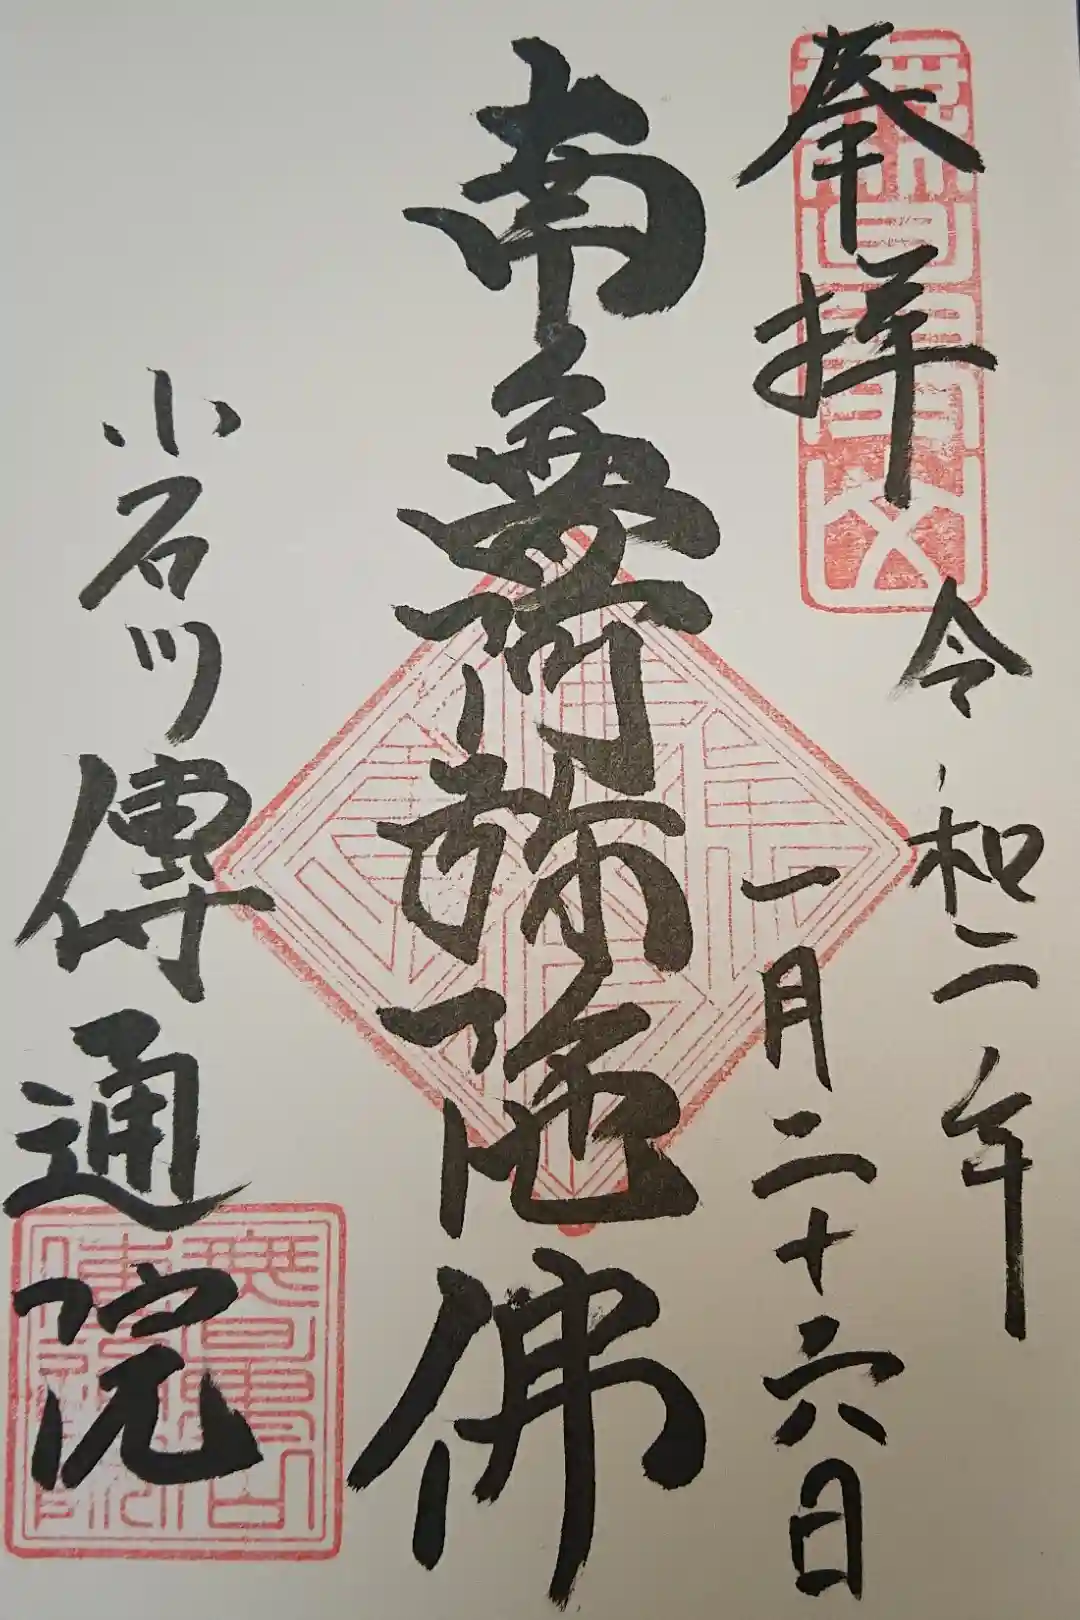 奉拝
令和二年
一月二十六日
南無阿弥陀佛
小石川
傳通院
無量山
傳通院